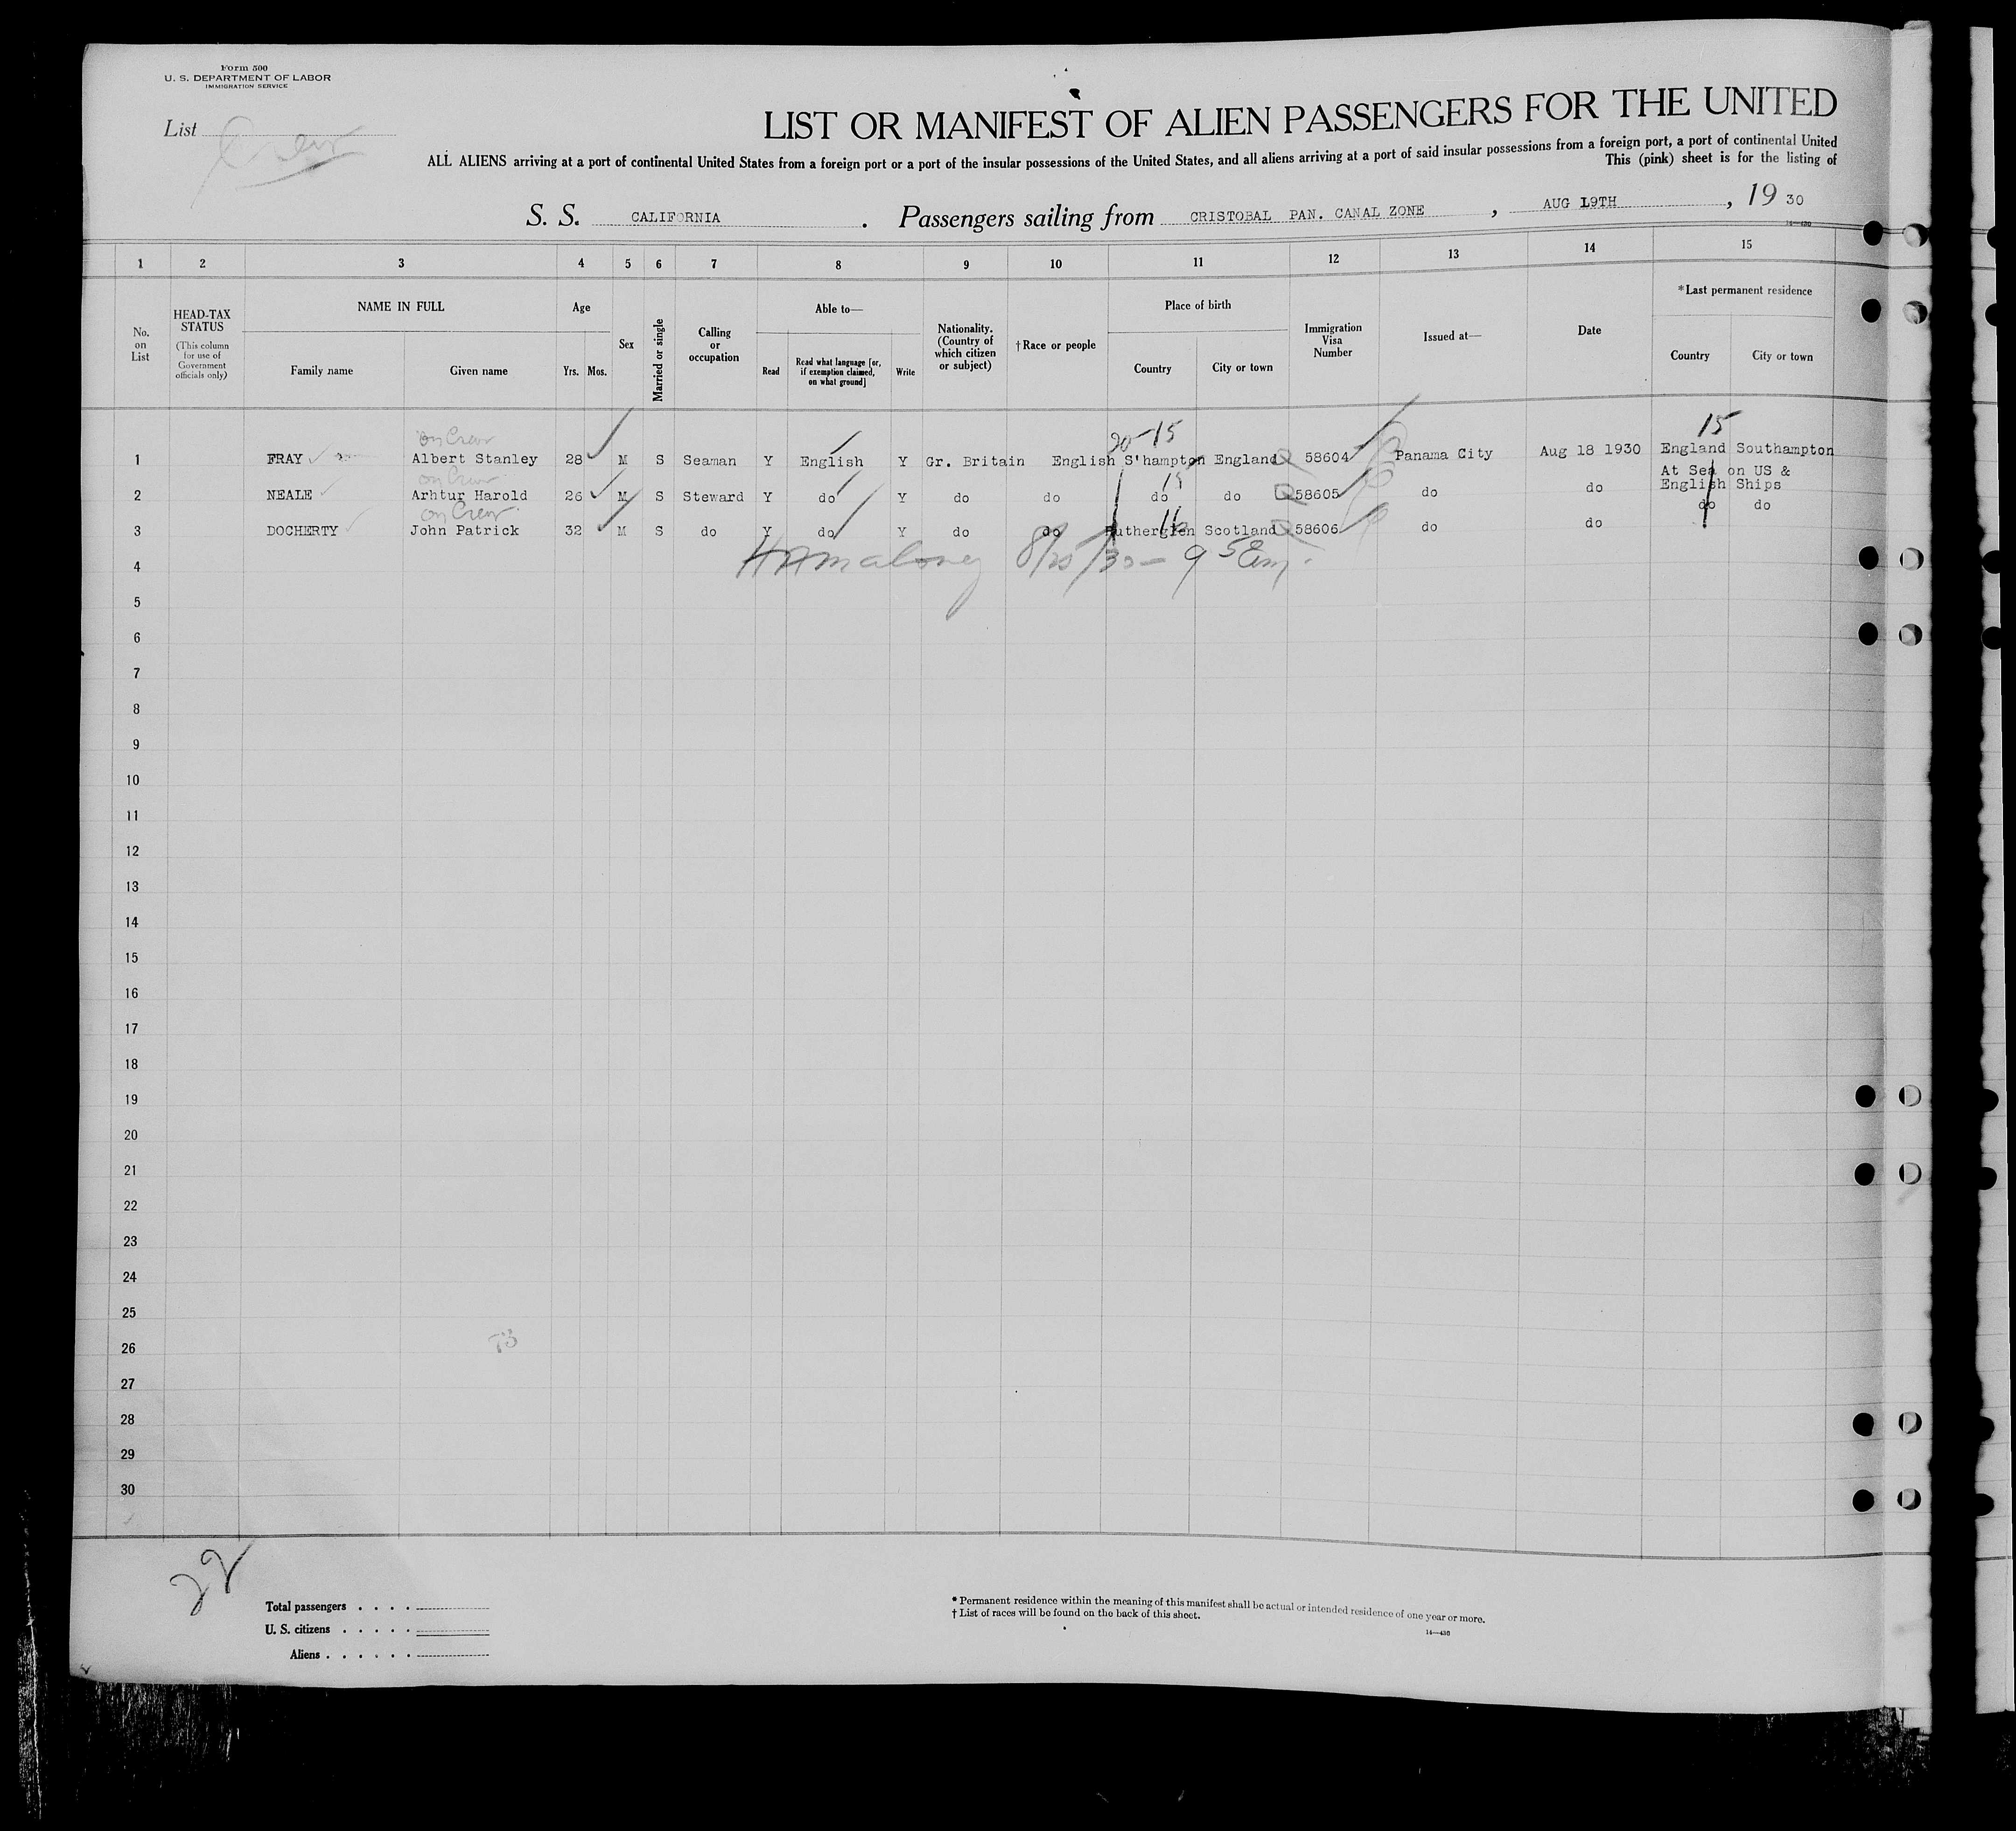 Form 500
U. S. DEPARTMENT OF LABOR
IMMIGRATION SERVICE
List Crew
LIST OR MANIFEST OF ALIEN PASSENGERS FOR THE UNITED
ALL ALIENS arriving at a port of continental United States from a foreign port or a port of the insular possessions of the United States, and all aliens arriving at a port of said insular possessions from a foreign port, a port of continental United
This (pink) sheet is for the listing of
S. S. CALIFORNIA . Passengers sailing from CRISTOBAL PAN. CANAL ZONE , AUG 19TH , 19 30
14—430
1 2 3 4 5 6 7 8 9 10 11 12 13 14 15
No. on List
HEAD-TAX STATUS (This column for use of Government officials only)
NAME IN FULL Family name Given name
Age Yrs. Mos.
Sex
Married or single
Calling or occupation
Able to— Read Read what language [or, if exemption claimed, on what ground] Write
Nationality. (Country of which citizen or subject)
†Race or people
Place of birth Country City or town
Immigration Visa Number
Issued at—
Date
*Last permanent residence Country City or town
on Crew 20-15 15
1 FRAY Albert Stanley 28 M S Seaman Y English Y Gr. Britain English S'hampton England 58604 Panama City Aug 18 1930 England Southampton
on Crew 15 At Sea on US &
2 NEALE Arhtur Harold 26 M S Steward Y do Y do do do do 58605 do do English Ships
on Crew do do
3 DOCHERTY John Patrick 32 M S do Y do Y do do Rutherglen Scotland 58606 do do
4 HAMaloney 8/25/30 -
5
6
7
8
9
10
11
12
13
14
15
16
17
18
19
20
21
22
23
24
25
26
27
28
29
30
22
Total passengers . . . .
U. S. citizens . . . . .
Aliens . . . . . .
* Permanent residence within the meaning of this manifest shall be actual or intended residence of one year or more.
† List of races will be found on the back of this sheet.
14—430